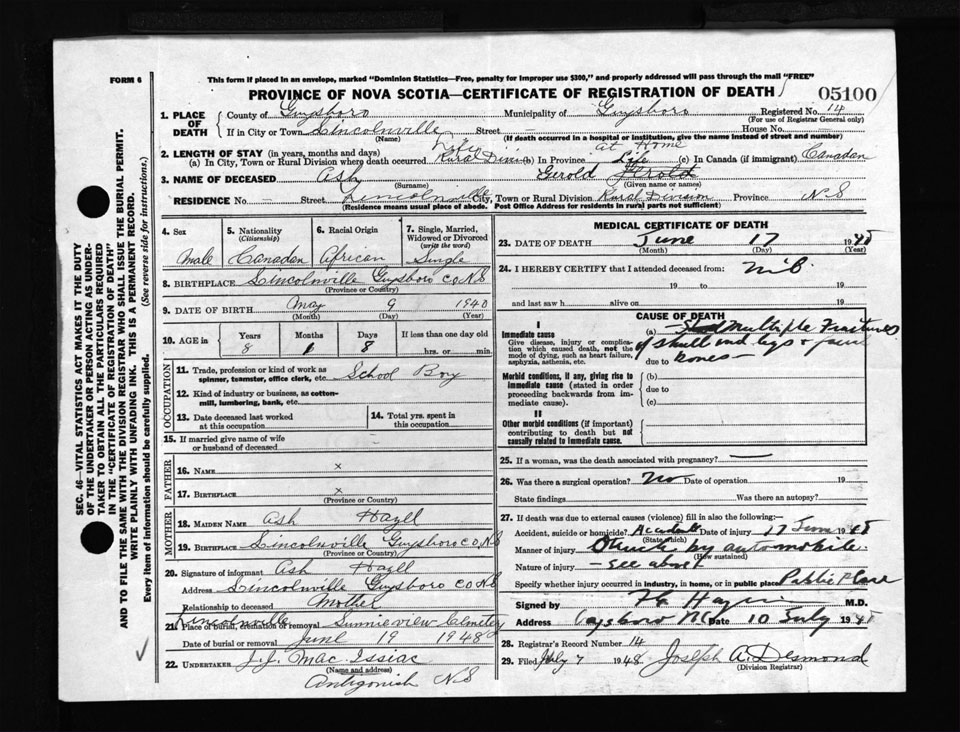 FORM 6
This form if placed in an envelope, marked "Dominion Statistics—Free, penalty for improper use $300," and properly addressed will pass through the mail "FREE"
PROVINCE OF NOVA SCOTIA—CERTIFICATE OF REGISTRATION OF DEATH
05100
1. PLACE OF DEATH
County of Guysboro Municipality of Guysboro Registered No. 14
(For use of Registrar General only)
If in City or Town Lincolnville Street — House No. —
(Name) (If death occurred in a hospital or institution, give the name instead of street and number)
2. LENGTH OF STAY (in years, months and days) Life at Home
(a) In City, Town or Rural Division where death occurred Rural Divi (b) In Province Life (c) In Canada (if immigrant) Canadan
3. NAME OF DECEASED Ash Gerold
(Surname) (Given name or names)
RESIDENCE No. — Street Lincolnville City, Town or Rural Division Rural Division Province N.S
(Residence means usual place of abode. Post Office Address for residents in rural parts not sufficient)
4. Sex Male
5. Nationality (Citizenship) Canadan
6. Racial Origin African
7. Single, Married, Widowed or Divorced (write the word) Single
8. BIRTHPLACE Lincolnville Guysboro Co N.S
(Province or Country)
9. DATE OF BIRTH May 9 1940
(Month) (Day) (Year)
10. AGE in Years 8 Months 1 Days 8 If less than one day old hrs. or min.
OCCUPATION
11. Trade, profession or kind of work as spinner, teamster, office clerk, etc. School Boy
12. Kind of industry or business, as cotton-mill, lumbering, bank, etc.
13. Date deceased last worked at this occupation
14. Total yrs. spent in this occupation
15. If married give name of wife or husband of deceased
FATHER
16. NAME x
17. BIRTHPLACE x
(Province or Country)
MOTHER
18. MAIDEN NAME Ash Hazll
19. BIRTHPLACE Lincolnville Guysboro Co. N.S
(Province or Country)
20. Signature of informant Ash Hazll
Address Lincolnville Guysboro Co N.S
Relationship to deceased Mother
Lincolnville
21. Place of burial, cremation or removal Sunnieview Cemetey
Date of burial or removal June 19 1948
22. UNDERTAKER J.J. Mac Issiac
(Name and address)
Antigonish N.S
MEDICAL CERTIFICATE OF DEATH
23. DATE OF DEATH June 17 1948
(Month) (Day) (Year)
24. I HEREBY CERTIFY that I attended deceased from:
19 to 19
and last saw h alive on 19
CAUSE OF DEATH
I
Immediate cause
Give disease, injury or complication which caused death, not the mode of dying, such as heart failure, asphyxia, asthenia, etc.
(a) Multiple Fractures
of skull and legs &
due to bones —
Morbid conditions, if any, giving rise to immediate cause (stated in order proceeding backwards from immediate cause).
(b)
due to
(c)
II
Other morbid conditions (if important) contributing to death but not causally related to immediate cause.
25. If a woman, was the death associated with pregnancy? —
26. Was there a surgical operation? No Date of operation 19
State findings Was there an autopsy?
27. If death was due to external causes (violence) fill in also the following:—
Accident, suicide or homicide? Accident Date of injury 17 June 1948
(State which)
Manner of injury Struck by automobile.
(How sustained)
Nature of injury — see above
Specify whether injury occurred in industry, in home, or in public place Public Place
Signed by M.D.
Address Date 10 July 1948
28. Registrar's Record Number 14
29. Filed July 7 1948. Joseph A. Desmond
(Division Registrar)
SEC. 46—VITAL STATISTICS ACT MAKES IT THE DUTY
OF THE UNDERTAKER OR PERSON ACTING AS UNDER-
TAKER TO OBTAIN ALL THE PARTICULARS REQUIRED
IN THE "CERTIFICATE OF REGISTRATION OF DEATH"
AND TO FILE THE SAME WITH THE DIVISION REGISTRAR WHO SHALL ISSUE THE BURIAL PERMIT.
WRITE PLAINLY WITH UNFADING INK. THIS IS A PERMANENT RECORD.
Every item of information should be carefully supplied. (See reverse side for instructions.)